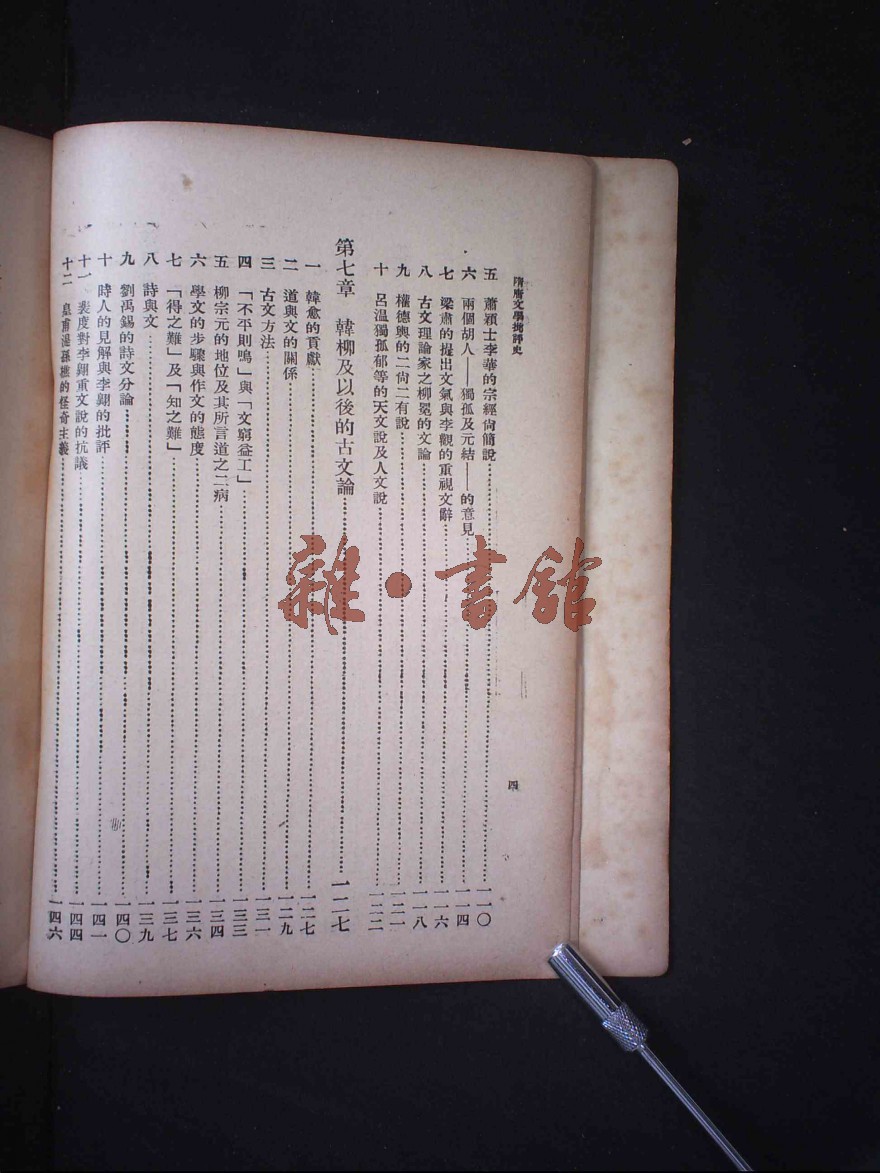 隋唐文學批評史
四
五 蕭穎士李華的宗經尚簡說……一一〇
六 兩個胡人——獨孤及元結——的意見……一一四
七 梁肅的提出文氣與李觀的重視文辭……一一六
八 古文理論家之柳冕的文論……一一八
九 權德輿的二尙二有說……一二一
十 呂溫獨孤郁等的天文說及人文說……一二二
第七章 韓柳及以後的古文論……一二七
一 韓愈的貢獻……一二七
二 道與文的關係……一二九
三 古文方法……一三一
四 「不平則鳴」與「文窮益工」……一三三
五 柳宗元的地位及其所言道之二病……一三四
六 學文的步驟與作文的態度……一三六
七 「得之難」及「知之難」……一三七
八 詩與文……一三九
九 劉禹錫的詩文分論……一四〇
十 時人的見解與李翺的批評……一四一
十一 裴度對李翺重文說的抗議……一四四
十二 皇甫湜孫樵的怪奇主義……一四六
雜·書館